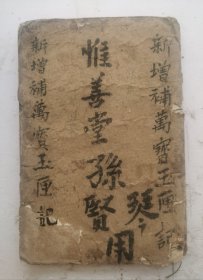 新增補萬寶玉匣記
惟善堂孫賢用
琴
新增補萬寶玉匣記